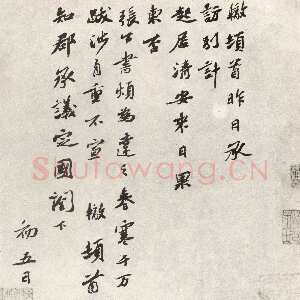 轍頓首昨日承
訪別計
起居清安来日果
東去
張公書煩為達之春寒千万
跋涉自重不宣 轍頓首
知郡承議定國閣下
初五日
Shufawang.CN